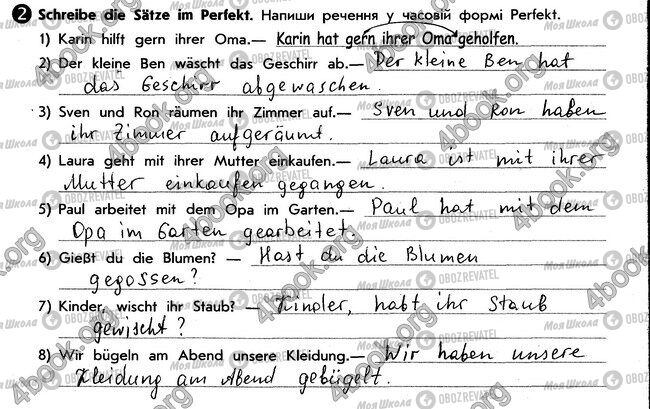 2 Schreibe die Sätze im Perfekt. Напиши речення у часовій формі Perfekt.
1) Karin hilft gern ihrer Oma.— Karin hat gern ihrer Oma geholfen.
2) Der kleine Ben wäscht das Geschirr ab.— Der kleine Ben hat
das Geschirr abgewaschen.
3) Sven und Ron räumen ihr Zimmer auf.— Sven und Ron haben
ihr Zimmer aufgeräumt.
4) Laura geht mit ihrer Mutter einkaufen.— Laura ist mit ihrer
Mutter einkaufen gegangen.
5) Paul arbeitet mit dem Opa im Garten.— Paul hat mit dem
Opa im Garten gearbeitet.
6) Gießt du die Blumen? — Hast du die Blumen
gegossen?
7) Kinder, wischt ihr Staub? — Kinder, habt ihr Staub
gewischt?
8) Wir bügeln am Abend unsere Kleidung.— Wir haben unsere
Kleidung am Abend gebügelt.
4book.org
Моя Школа
OBOZREVATEL